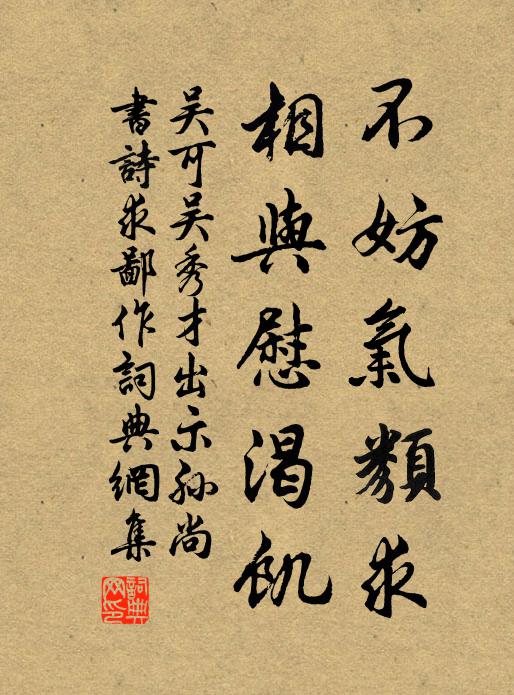 不妨氣類求
相與慰渴飢
吳可吳秀才出示孫尚
書詩求鄙作詞典網集
詞典网印